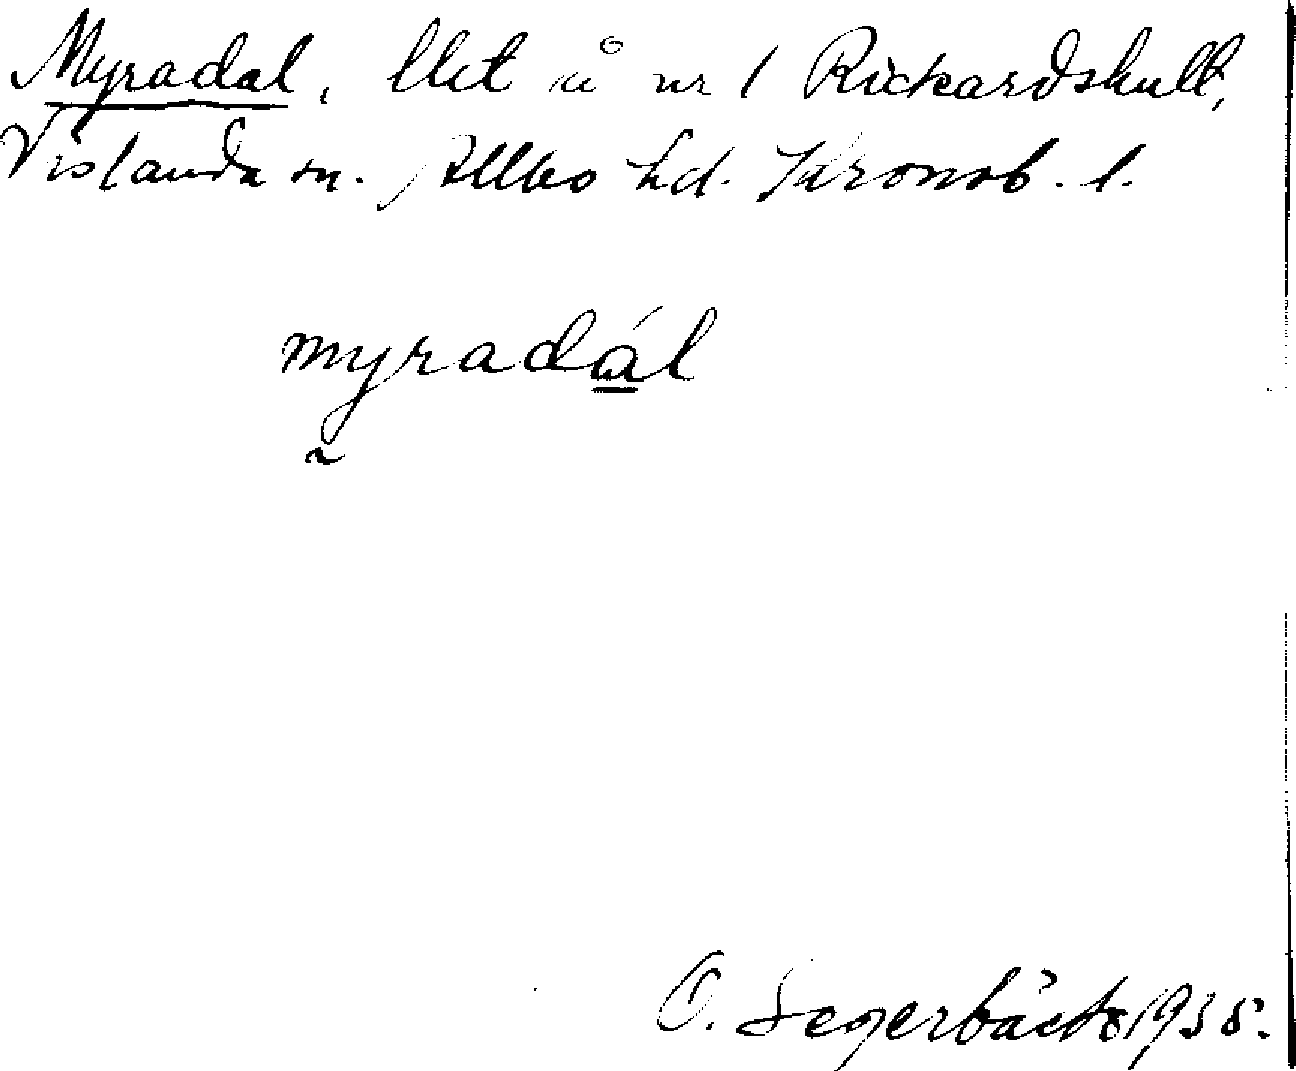 Myradal, lht å nr 1 Rickardshult,
Vislanda sn. Allbo hd. Kronob. l.
myradál
O. Segerbäck 1935.